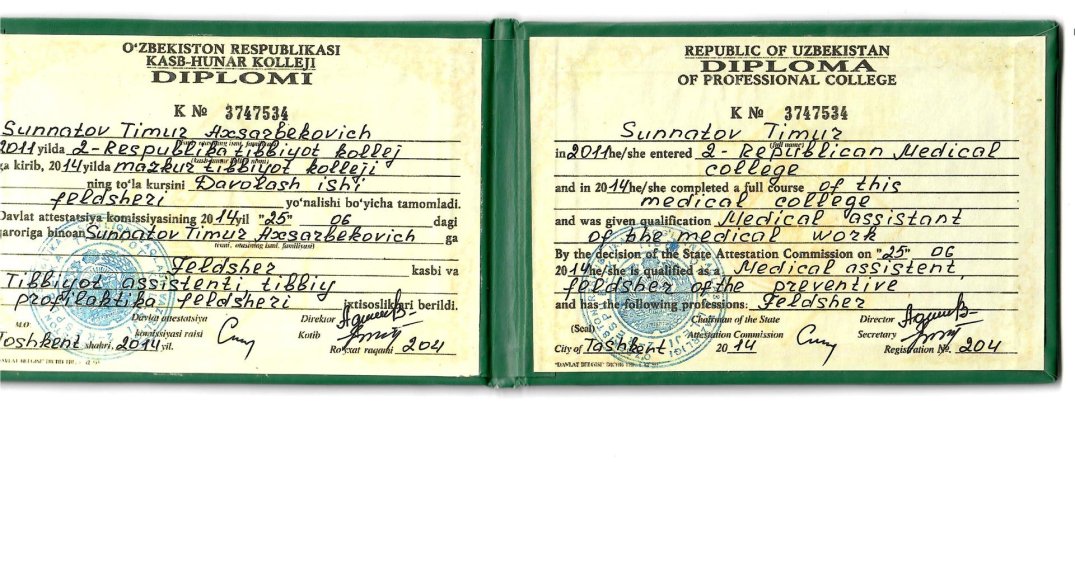 O'ZBEKISTON RESPUBLIKASI
KASB-HUNAR KOLLEJI
DIPLOMI
K № 3747534
Sunnatov Timur Axsarbekovich
2011 yilda 2-Respublika tibbiyot kollej
ga kirib, 2014 yilda mazkur tibbiyot kolleji
ning to'la kursini Davolash ishi
feldsheri yo'nalishi bo'yicha tamomladi.
Davlat attestatsiya komissiyasining 2014 yil "25" 06 dagi
qaroriga binoan Sunnatov Timur Axsarbekovich ga
(ismi, otasining ismi, familiyasi)
Feldsher kasbi va
Tibbiyot assistenti, tibbiy
profilaktika feldsheri ixtisosliklari berildi.
M.O. Davlat attestatsiya Direktor
komissiyasi raisi Kotib
Toshkent shahri, 2014 yil. Ro'yxat raqami 204
REPUBLIC OF UZBEKISTAN
DIPLOMA
OF PROFESSIONAL COLLEGE
K № 3747534
Sunnatov Timur
(full name)
in 2011 he/she entered 2- Republican Medical
college
and in 2014 he/she completed a full course of this
medical college
and was given qualification Medical assistant
of the medical work
By the decision of the State Attestation Commission on "25" 06
2014 he/she is qualified as a Medical assistent,
feldsher of the preventive
and has the following professions: Feldsher
(Seal) Chairman of the State Director
Attestation Commission Secretary
City of Tashkent 2014 Registration №. 204